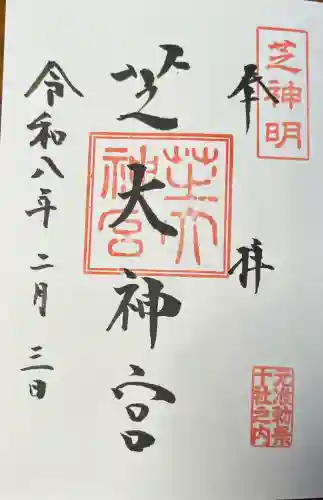 奉拝
芝神明
芝大神宮
芝大神宮
元准勅祭
十社之内
令和八年二月三日